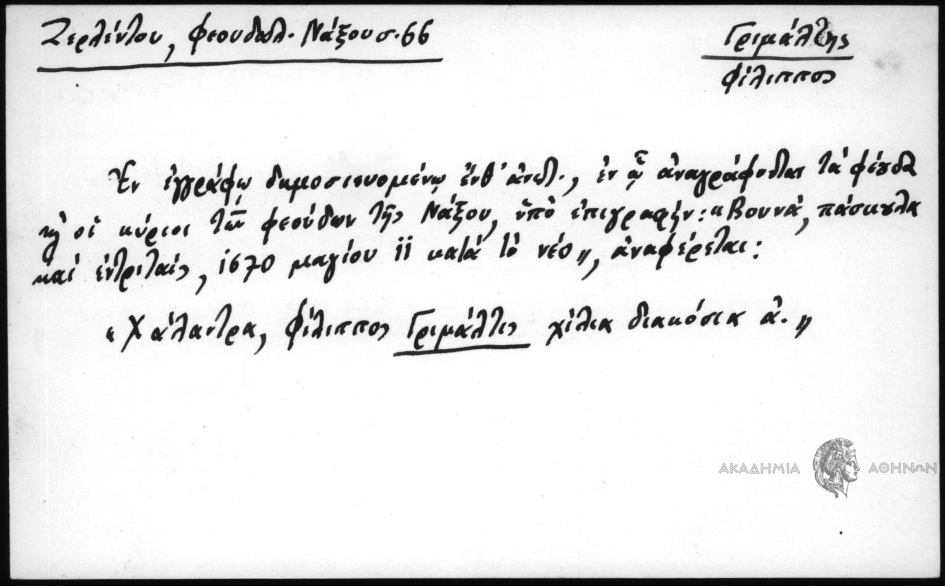 Ζερλέντου, Φεουδαλ. Νάξου σ. 66
Γριμάλδης
Φίλιππος
Ἐν ἐγγράφῳ δημοσιευομένῳ ἔνθ' ἀνωτ., ἐν ᾧ ἀναγράφονται τὰ φέουδα
κ οἱ κύριοι τῶν φεούδων τῆς Νάξου, ὑπὸ ἐπιγραφήν: «Βουνά, πάσκουλα
καὶ ἐντριταίς, 1670 μαγίου 11 κατὰ τὸ νέο», ἀναφέρεται:
«Χάλαντρα, Φίλιππος Γριμάλτις χίλια διακόσια ἀ.»
ΑΚΑΔΗΜΙΑ ΑΘΗΝΩΝ